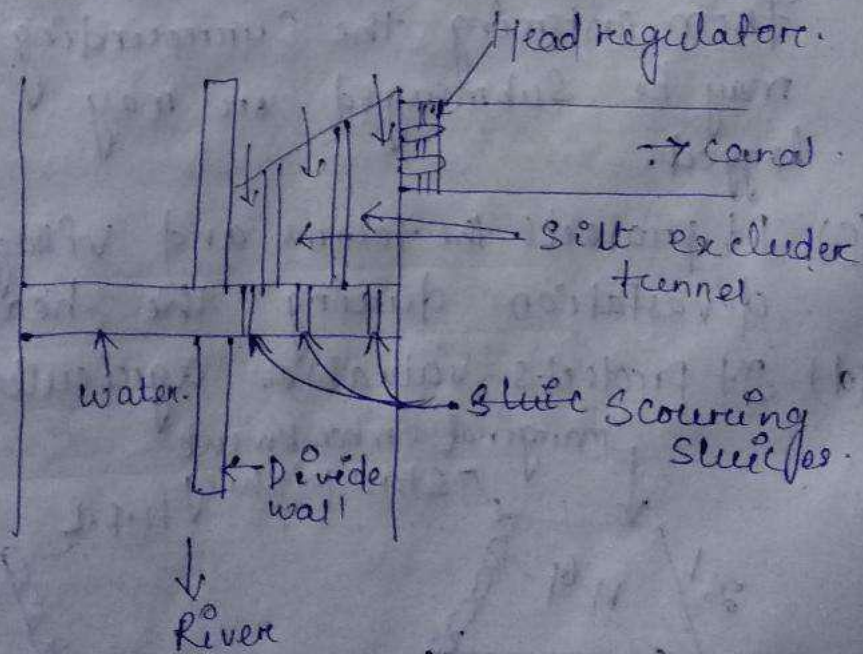 Head regulatore.
→ Canal.
Silt excluder
tunnel.
Water.
Sluic Scouring
Sluices.
Divide
wall
River